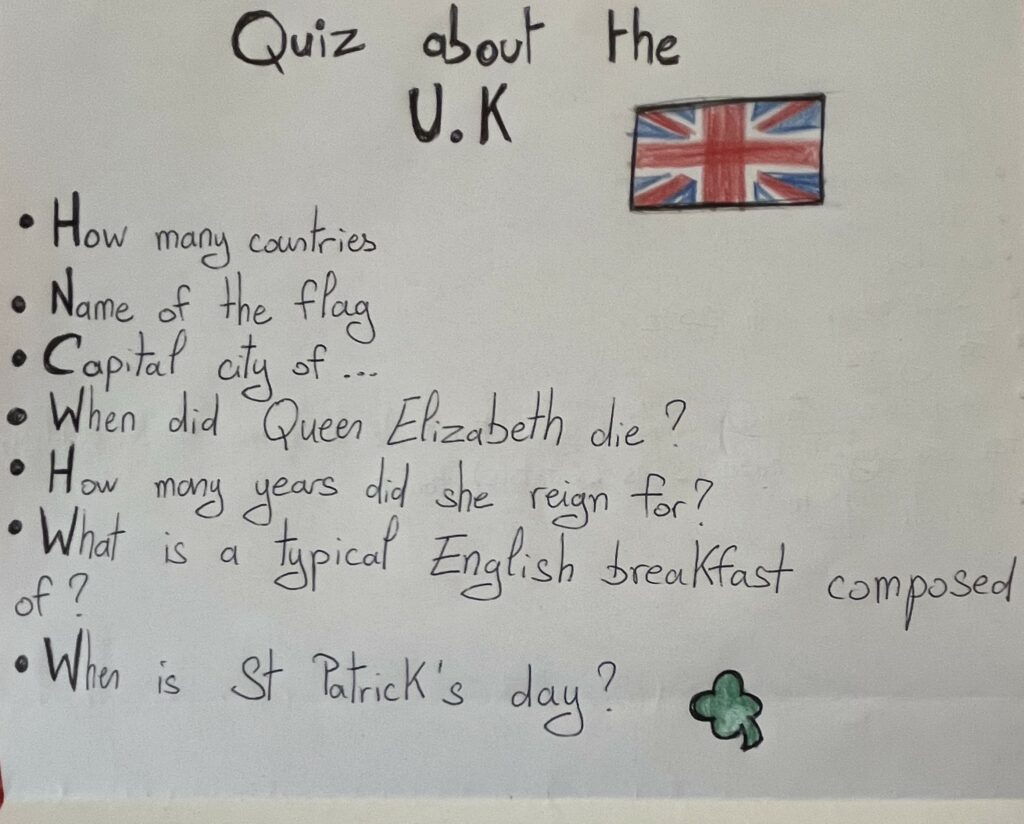 Quiz about the
U.K
• How many countries
• Name of the flag
• Capital city of ...
• When did Queen Elizabeth die ?
• How many years did she reign for?
• What is a typical English breakfast composed
of ?
• When is St Patrick's day ?